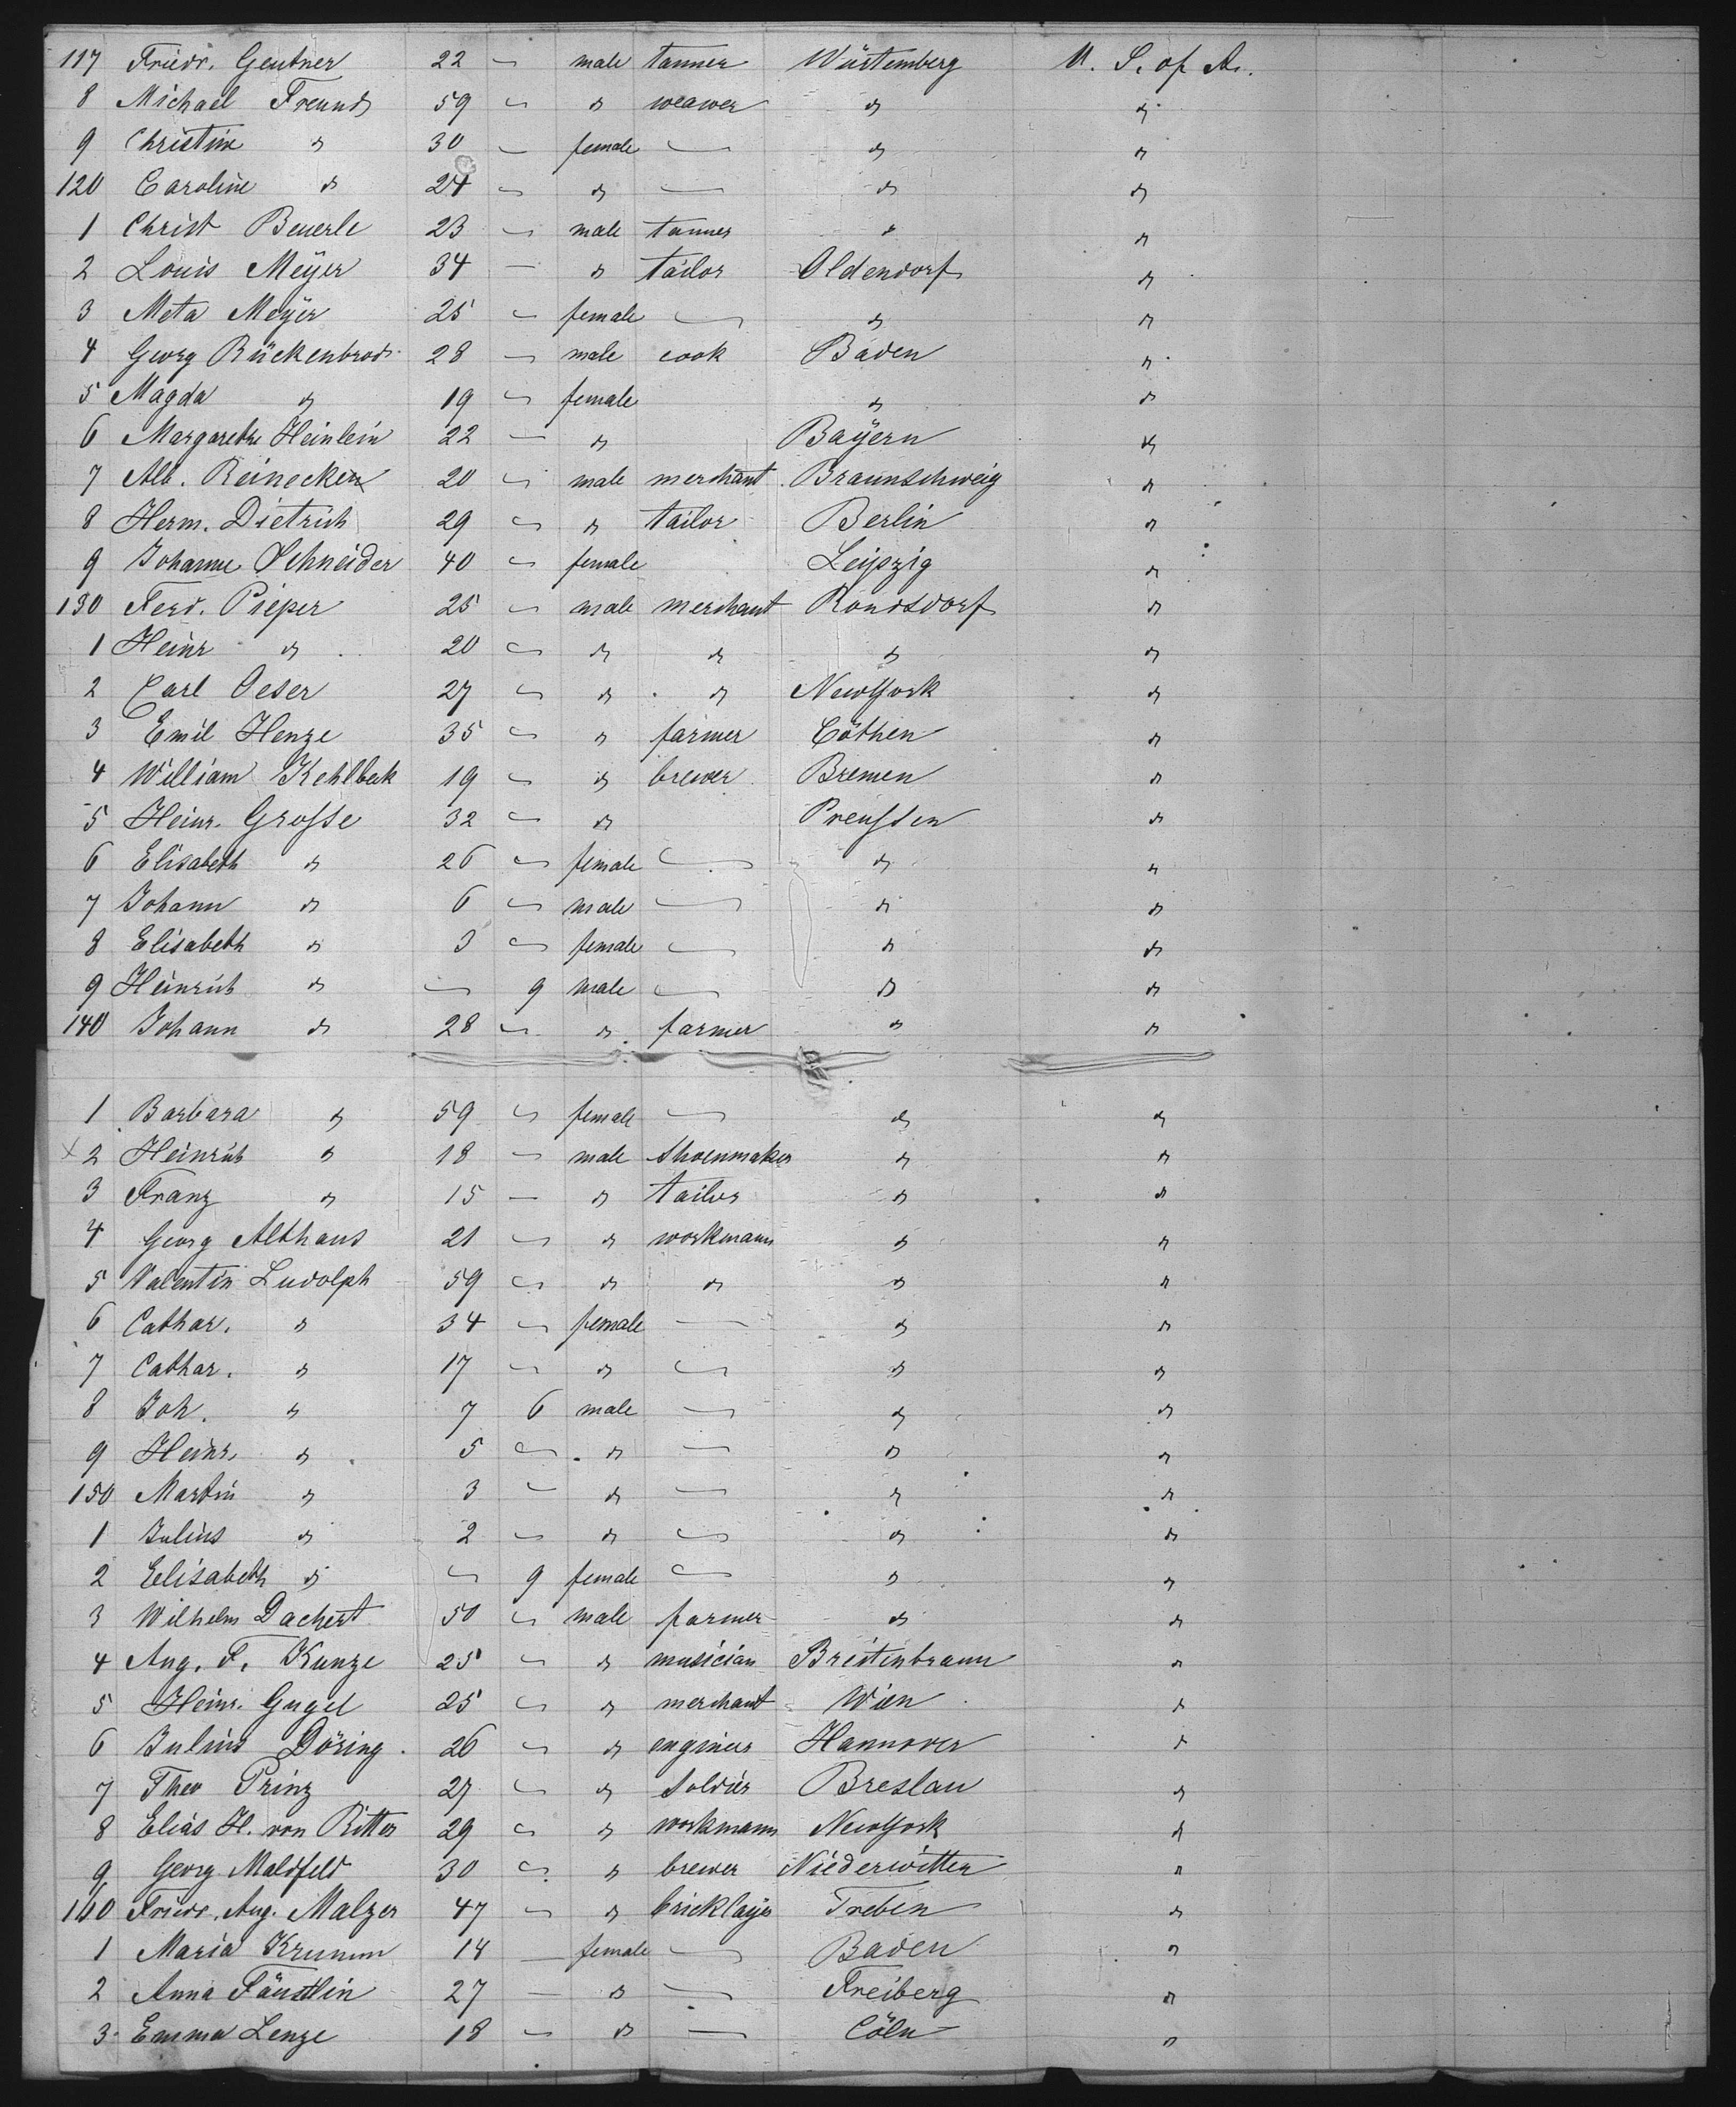 117 Friedr. Gentner 22 – male tanner Würtemberg U. S. of A.
8 Michael Freund 59 – " weawer " "
9 Christine " 30 – female – " "
120 Caroline " 24 – " – " "
1 Christ Beuerle 23 – male tanner " "
2 Louis Meÿer 34 – " tailor Oldendorf "
3 Meta Meÿer 25 – female – " "
4 Georg Rückenbrod 28 – male cook Baden "
5 Magda " 19 – female " "
6 Margarethe Heinlein 22 – " Baÿern "
7 Alb. Reinecken 20 – male merchant Braunschweig "
8 Herm. Dietrich 29 – " tailor Berlin "
9 Johanne Schneider 40 – female Leipzig "
130 Ferd. Pieper 25 – male merchant Rondsdorf "
1 Heinr " 20 – " " " "
2 Carl Oeser 27 – " " NewYork "
3 Emil Henze 35 – " farmer Cöthen "
4 William Kehlbeck 19 – " brewer Bremen "
5 Heinr. Grosse 32 – " Preussen "
6 Elisabeth " 26 – female – " "
7 Johann " 6 – male – " "
8 Elisabeth " 3 – female – " "
9 Heinrich " – 9 male – " "
140 Johann " 28 – " farmer " "
1 Barbara " 59 – female – " "
x 2 Heinrich " 18 – male shoenmaker " "
3 Franz " 15 – " tailor " "
4 Georg Althaus 21 – " workmann " "
5 Valentin Ludolph 59 – " " " "
6 Cathar. " 34 – female – " "
7 Cathar. " 17 – " – " "
8 Joh. " 7 6 male – " "
9 Heinr. " 5 – " – " "
150 Martin " 3 – " – " "
1 Julius " 2 – " – " "
2 Elisabeth " – 9 female – " "
3 Wilhelm Dachert 50 – male farmer " "
4 Aug. F. Kunze 25 – " musician Breitenbraun "
5 Heinr. Gugel 25 – " merchant Wien "
6 Julius Döring 26 – " engineer Hannover "
7 Theo Prinz 27 – " soldier Breslau "
8 Elias H. von Ritter 29 – " workmann NewYork "
9 Georg Maldfeld 30 – " brewer Niederwitten "
160 Friedr. Aug. Malzer 47 – " bricklayer Treben "
1 Maria Krumm 14 – female – Baden "
2 Anna Fäustlin 27 – " – Freiberg "
3 Emma Lenze 18 – " – Cöln "